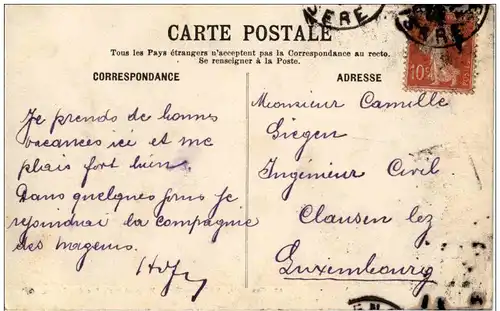 CARTE POSTALE
Tous les Pays étrangers n'acceptent pas la Correspondance au recto.
Se renseigner à la Poste.
CORRESPONDANCE
Je prends de bonnes
vacances ici et me
plais fort bien.
Dans quelques jours je
rejoindrai la compagnie
des
ADRESSE
Monsieur Camille
Giegen
Ingénieur Civil
Clausen lez
Luxembourg
10